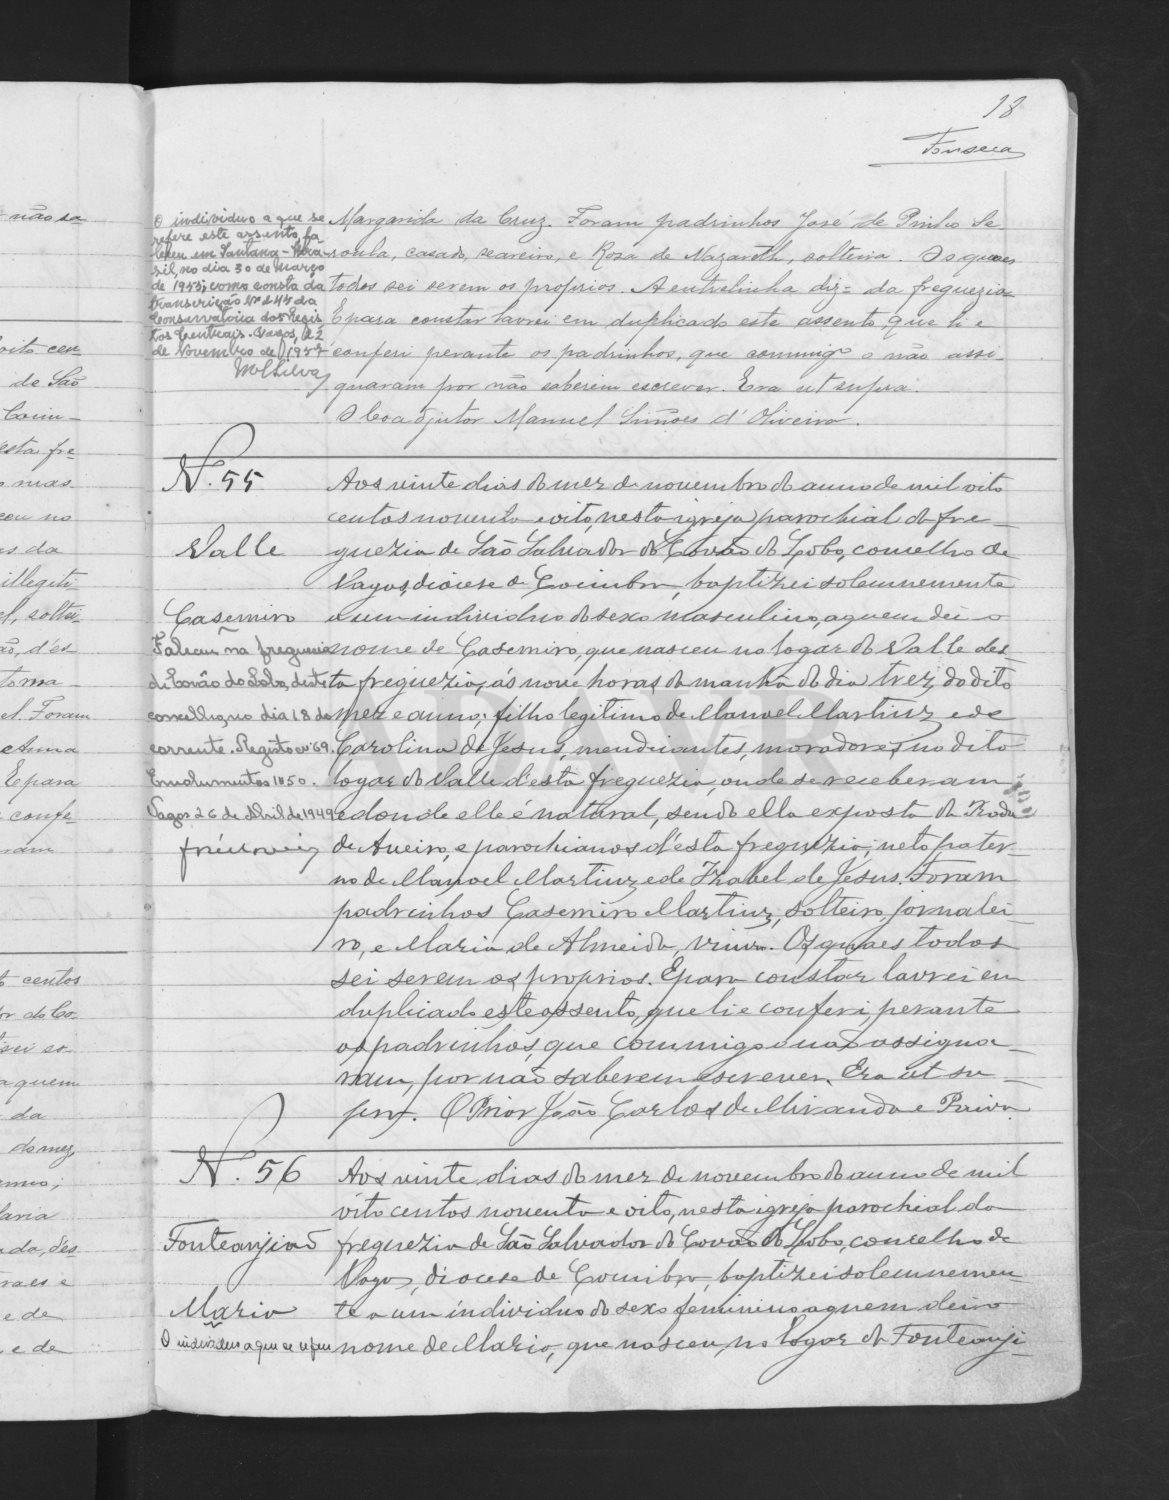 18
Fonseca
O individuo a que se
refere este assento, fa
leceu em Santana - Bra
sil, no dia 30 de março
de 1953, como consta da
transcrição Nº 245 da
Conservatória dos Regis
tos Centrais. Vagos, 22
de Novembro de 1957
MCSilva
Margarida da Cruz. Foram padrinhos José de Pinho Se
roula, casado, seareiro, e Rosa de Nazareth, solteira. Os quaes
todos sei serem os proprios. A entrelinha diz = da freguezia
E para constar lavrei em duplicado este assento, que li e
conferi perante os padrinhos, que commigo o não assi-
gnaram por não saberem escrever. Era ut supra.
O Coadjutor Manuel Simões d'Oliveira.
N. 55
Valle
Casemiro
Faleceu na freguesia
de Covão do Lobo, deste
concelho, no dia 18 do
corrente. Registo nº 69.
Emolumentos 1$50.
Vagos 26 de Abril de 1949
Aos vinte dias do mez de novembro do anno de mil oito
centos noventa e oito, nesta igreja parochial da fre-
guezia de São Salvador do Covão do Lobo, concelho de
Vagos, diocese de Coimbra, baptizei solemnemente
a um individuo do sexo masculino, a quem dei o
nome de Casemiro, que nasceu no logar do Valle des
ta freguezia, ás nove horas da manhã do dia trez do dito
mez e anno; filho legitimo de Manoel Martins e de
Carolina de Jesus, mendicantes, moradores no dito
logar do Valle d'esta freguezia, onde se receberam
e donde elle é natural, sendo ella exposta da Roda
de Aveiro, e parochianos d'esta freguezia; neto pater-
no de Manoel Martins e de Izabel de Jesus. Foram
padrinhos Casemiro Martins, solteiro, jornalei
ro, e Maria de Almeida, viuva. Os quaes todos
sei serem os proprios. E para constar lavrei em
duplicado este assento, que li e conferi perante
os padrinhos, que commigo o não assigna-
ram, por não saberem escrever. Era ut su-
pra. O Prior João Carlos de Miranda e Paiva
N. 56
Fonteanjião
Maria
O individuo a que se refere
Aos vinte dias do mez de novembro do anno de mil
oito centos noventa e oito, nesta igreja parochial da
freguezia de São Salvador do Covão do Lobo, concelho de
Vagos, diocese de Coimbra, baptizei solemnemen
te a um individuo do sexo feminino a quem dei o
nome de Maria, que nasceu, no logar da Fonteanji-
não sa
oito cen
de São
Coim-
esta fre
mas
ceu no
as da
illegiti
el, soltei
ão, d'es
toma
el. Foram
e Anna
E para
confe-
ram
centos
or do Co-
a quem
da
do mez
anno;
aria
da, d'es
raes e
e de
e de
ADAVR